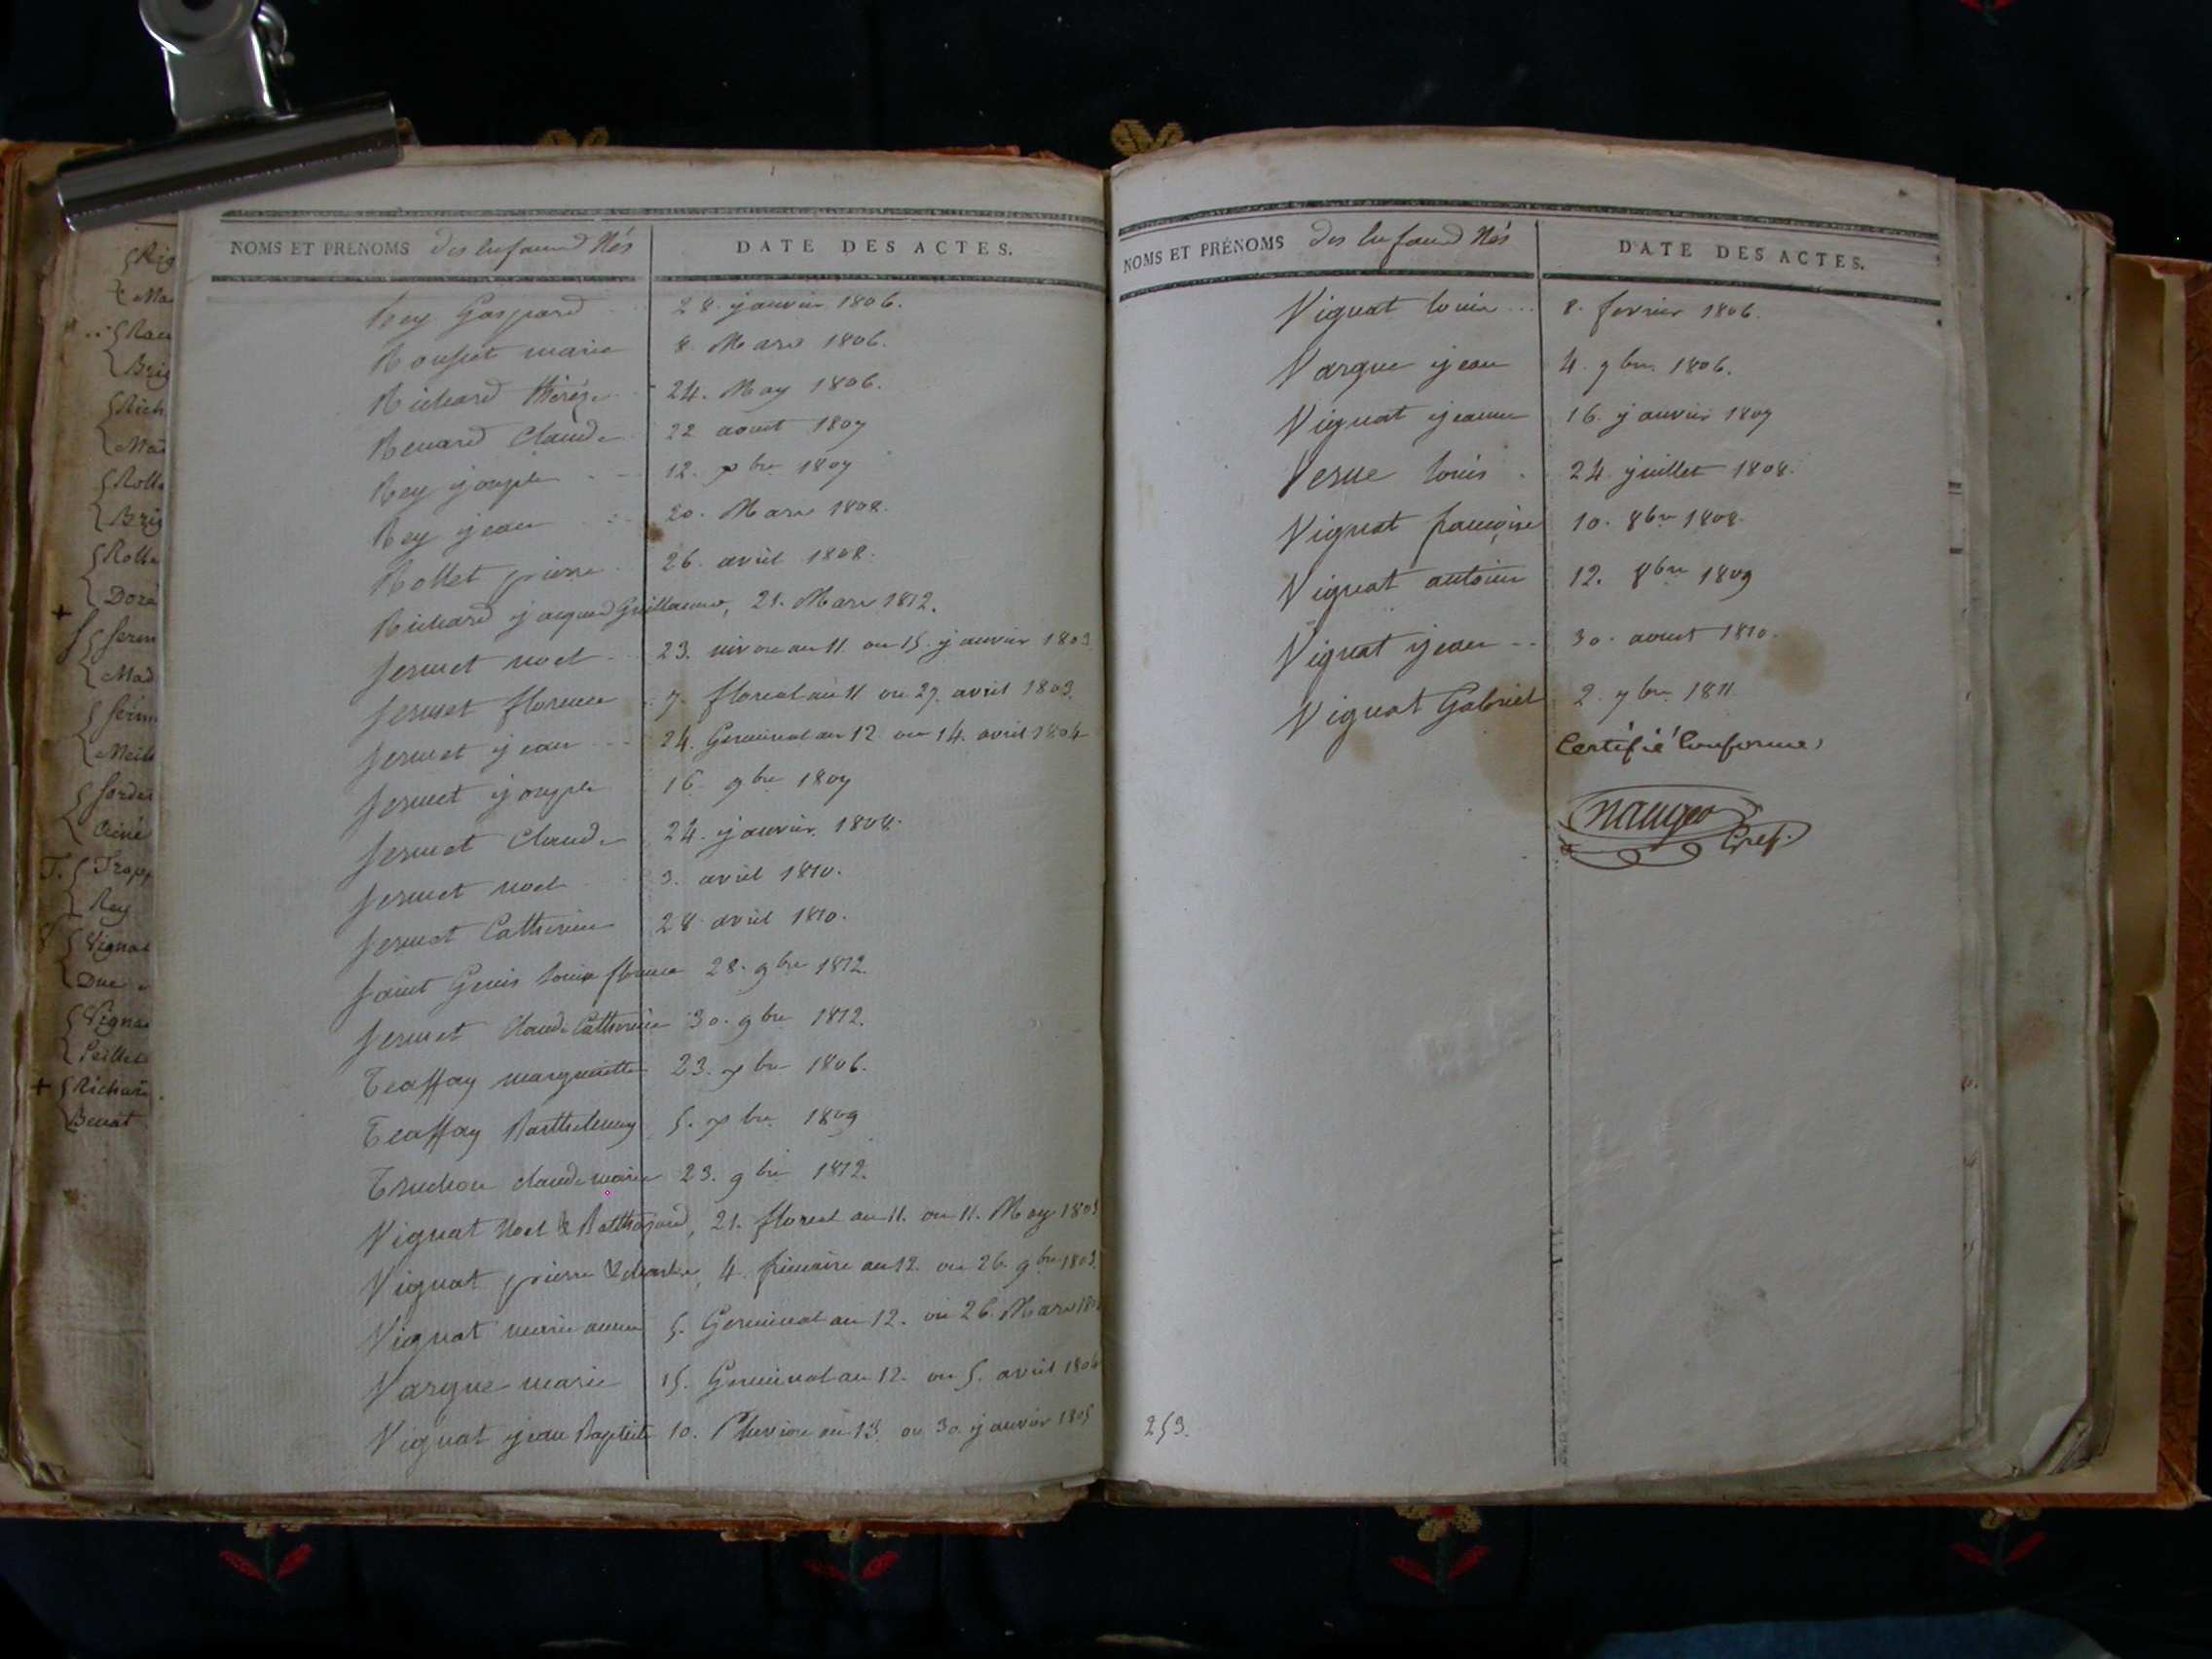 NOMS ET PRÉNOMS des Enfans Nés
DATE DES ACTES.
Rey Gaspard 28. janvier 1806.
Rousset marie 8. Mars 1806.
Richard thérèze 24. May 1806.
Renard Claude 22 aout 1807
Rey joseph 12. xbre 1807
Rey jean 20. Mars 1808.
Rollet pierre 26. avril 1808.
Richard jacques Guillaume, 21. Mars 1812.
Sermet noel 23. nivose an 11 ou 15. janvier 1803
Sermet florence 7. floreal an 11 ou 27. avril 1803.
Sermet jean 24. Germinal an 12 ou 14. avril 1804
Sermet joseph 16. 9bre 1807
Sermet Claude 24. janvier 1808.
Sermet noel 3. avril 1810.
Sermet Catherine 28 avril 1810.
Saint Genis louise florence 28. 9bre 1812.
Sermet Claude Catherine 30. 9bre 1812.
Teaffay marguerite 23. xbre 1806.
Teaffay Barthelemy 5. xbre 1809
Truchon claude marie 23. 9bre 1812.
Vignat Noel & Balthazard, 21. floreal an 11. ou 11. May 1803
Vignat pierre & charles, 4. frimaire an 12. ou 26. 9bre 1803.
Vignat marie anne 5. Germinal an 12. ou 26. Mars 180
Vargue marie 15. Germinal an 12. ou 5. avril 1804
Vignat jean Baptiste 10. Pluviose an 13. ou 30. janvier 1805
NOMS ET PRÉNOMS des Enfans Nés
DATE DES ACTES.
Vignat louise ... 8. fevrier 1806.
Vargue jean 4. 9bre. 1806.
Vignat jeanne 16. janvier 1807
Verue louis . 24. juillet 1808.
Vignat françoise 10. 8bre 1808.
Vignat antoine 12. 8bre 1809
Vignat jean -- 30. aoust 1810.
Vignat Gabriel 2. 7bre. 1811
Certifié Conforme
Greff.
253.
Rig
Ma
Rich
Mad
Rolle
Brig
Rolle
Mad
T.
Rey
Vigna
Vigna
Richar
Benat